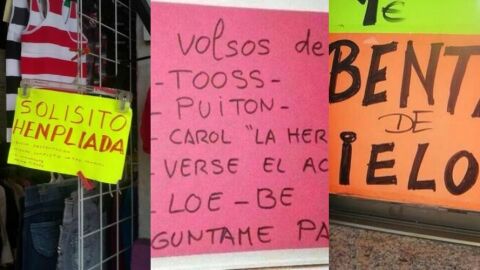 SOLISITO
HENPLIADA
Volsos de
-TOOSS-
-PUITON-
-CAROL "LA HER
-VERSE EL AC
-LOE-BE
GUNTAME PA
1€
BENTA
DE
IELO